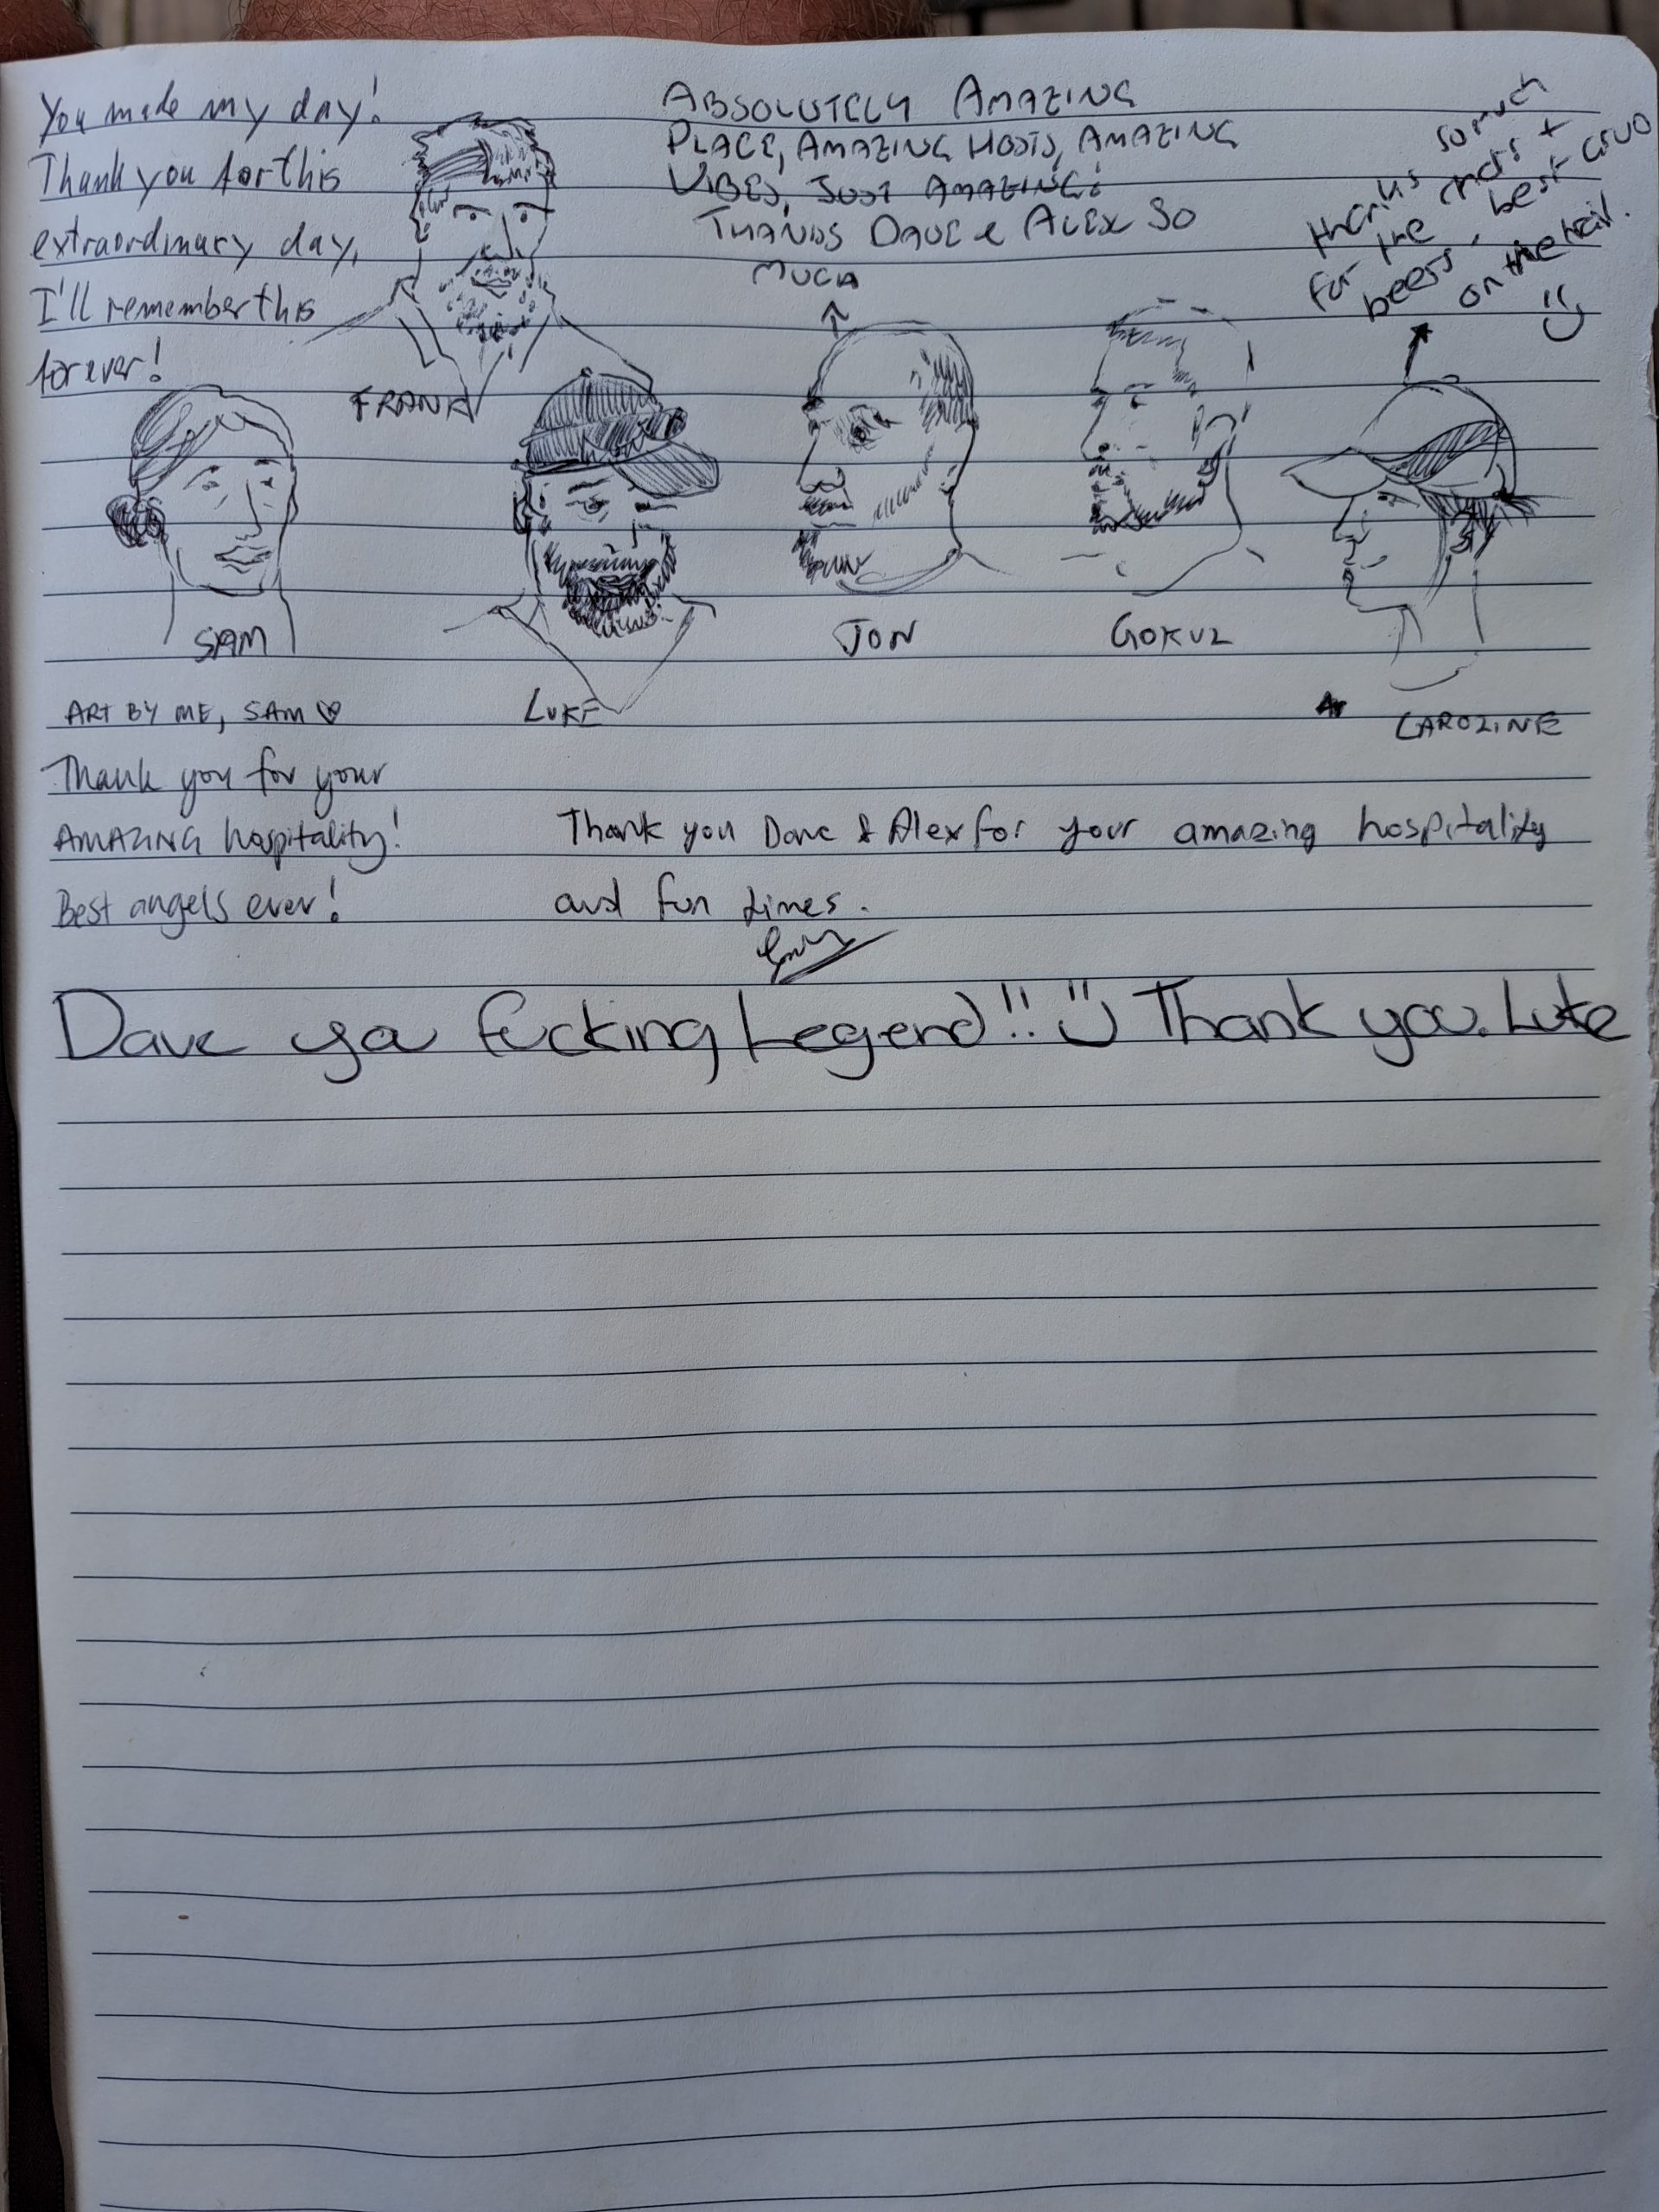 You made my day!
Thank you for this
extraordinary day,
I'll remember this
forever!
FRANK
ABSOLUTELY AMAZING
PLACE, AMAZING HOSTS, AMAZING
VIBES, JUST AMAZING!
THANKS DAVE & ALEX SO
MUCH
thanks so much
for the chats +
beers, best crew
on the trail.
SAM
LUKE
JON
GOKUL
CAROLINE
ART BY ME, SAM
Thank you for your
AMAZING hospitality!
Best angels ever!
Thank you Dave & Alex for your amazing hospitality
and fun times.
Dave ya fucking Legend!! Thank you. Luke